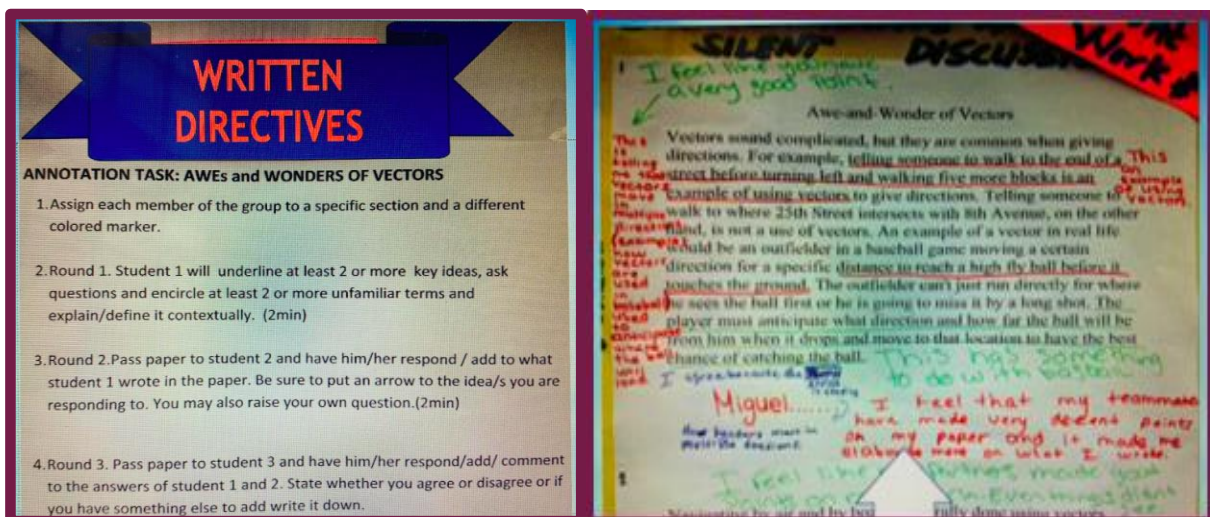 WRITTEN
DIRECTIVES
ANNOTATION TASK: AWEs and WONDERS OF VECTORS
1.Assign each member of the group to a specific section and a different
colored marker.
2.Round 1. Student 1 will underline at least 2 or more key ideas, ask
questions and encircle at least 2 or more unfamiliar terms and
explain/define it contextually. (2min)
3.Round 2.Pass paper to student 2 and have him/her respond / add to what
student 1 wrote in the paper. Be sure to put an arrow to the idea/s you are
responding to. You may also raise your own question.(2min)
4.Round 3. Pass paper to student 3 and have him/her respond/add/ comment
to the answers of student 1 and 2. State whether you agree or disagree or if
you have something else to add write it down.
SILENT
Work
I feel like you have
a very good point.
Awe-and-Wonder of Vectors
Vectors sound complicated, but they are common when giving
directions. For example, telling someone to walk to the end of a
street before turning left and walking five more blocks is an
example of using vectors to give directions. Telling someone to
walk to where 25th Street intersects with 8th Avenue, on the other
hand, is not a use of vectors. An example of a vector in real life
would be an outfielder in a baseball game moving a certain
direction for a specific distance to reach a high fly ball before it
touches the ground. The outfielder can't just run directly for where
he sees the ball first or he is going to miss it by a long shot. The
player must anticipate what direction and how far the ball will be
from him when it drops and move to that location to have the best
chance of catching the ball.
This
example
of using
vector.
This has something
to do with
I agree because the
Miguel
I feel that my teammates
have made very decent points
on my paper and it made me
elaborate more on what I wrote.
I feel like
made good
Navigating by air and by
done using vectors